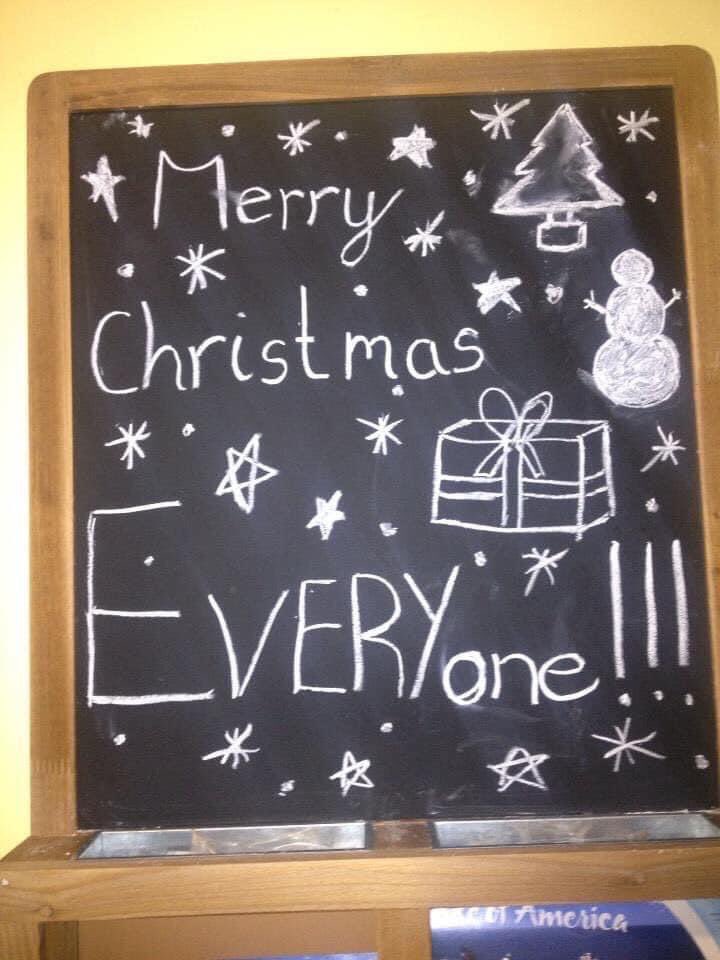 Merry
Christmas
EVERYone!!!
of America